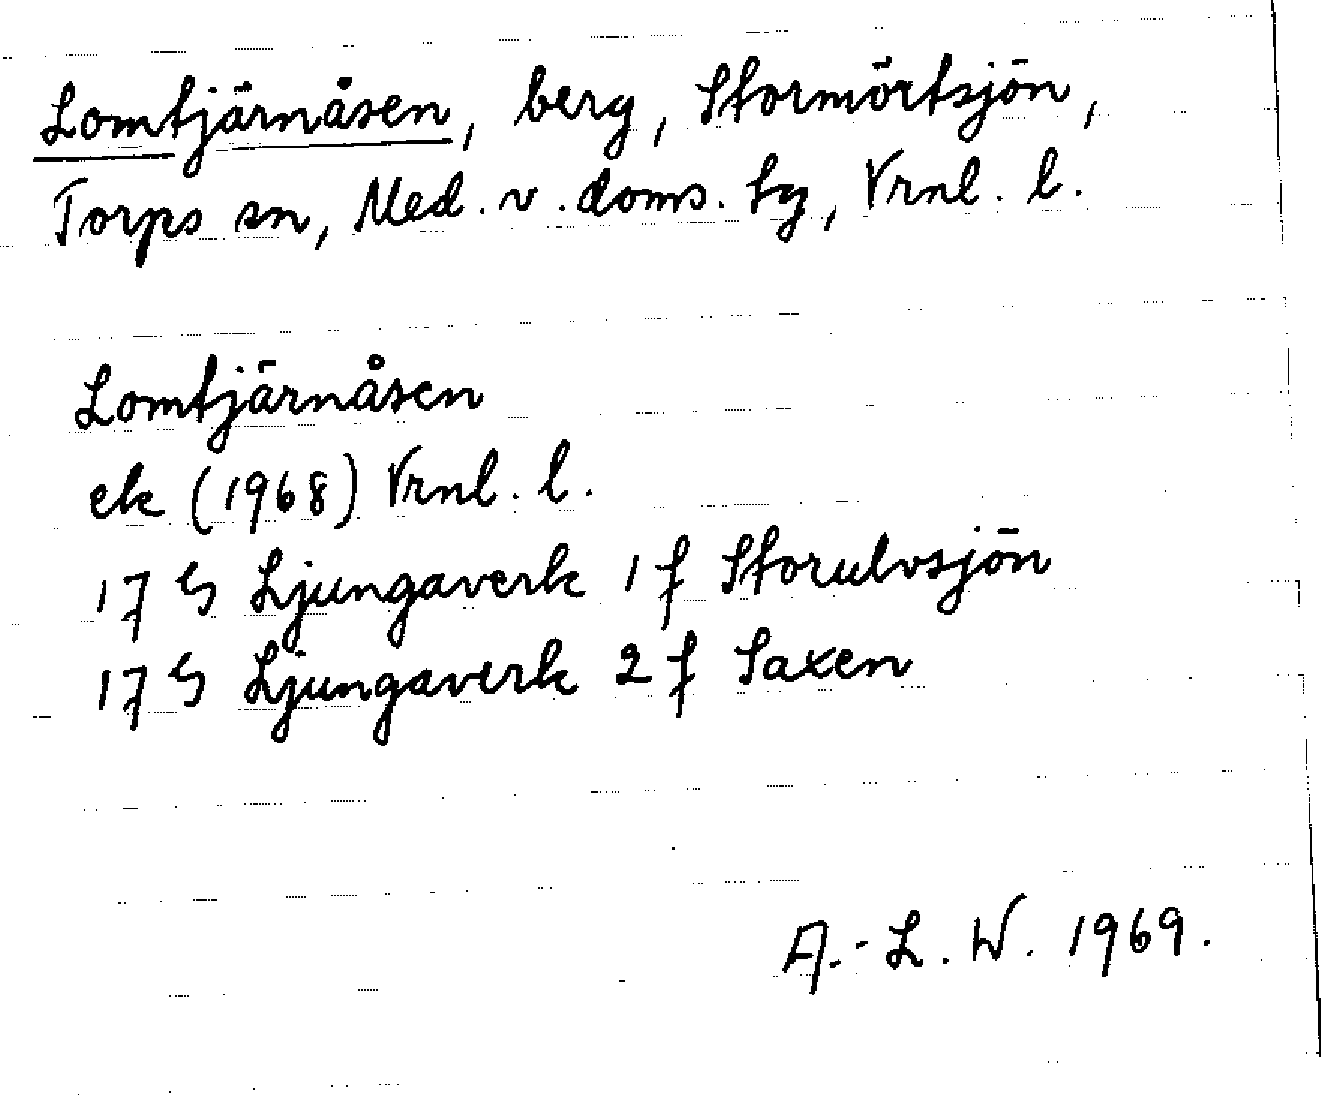 Lomtjärnåsen, berg, Stormörtsjön,
Torps sn, Med. v. doms. hg, Vrnl. l.
Lomtjärnåsen
ek (1968) Vrnl. l.
17 G Ljungaverk 1 f Storulvsjön
17 G Ljungaverk 2 f Saxen
A.-L. W. 1969.